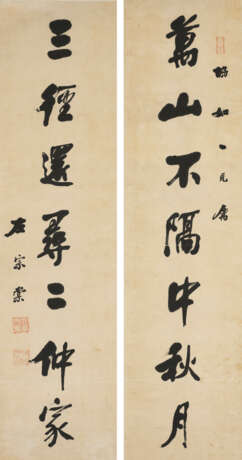 萬山不隔中秋月
如兄屬
三徑還尋二仲家
左宗棠